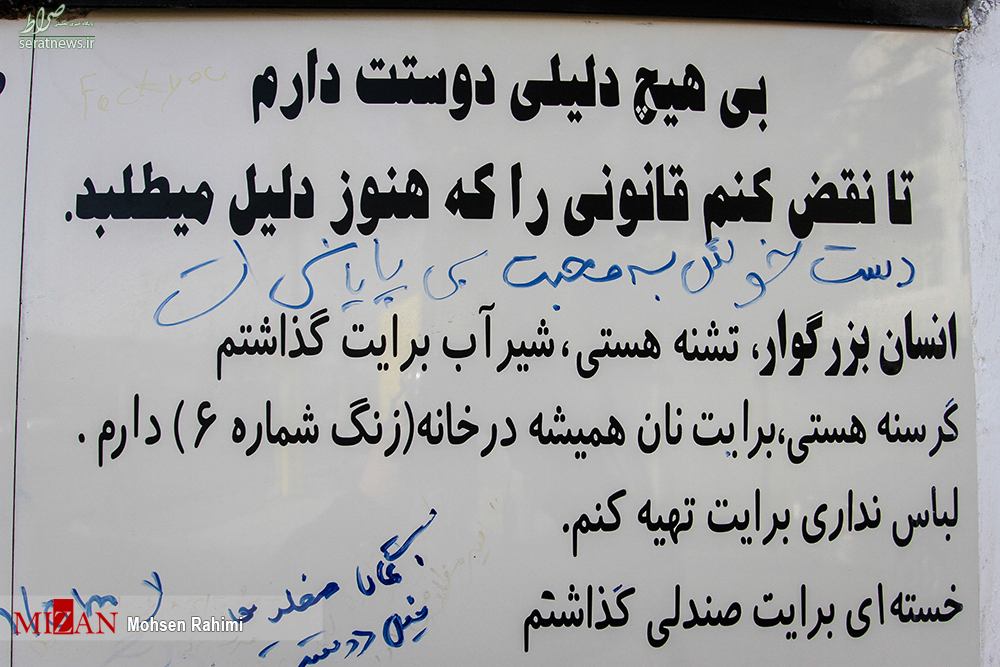 صراط
seratnews.ir
Fack you
بی هیچ دلیلی دوستت دارم
تا نقض کنم قانونی را که هنوز دلیل میطلبد.
دست خوش به محبت بی پایان ات
انسان بزرگوار، تشنه هستی، شیر آب برایت گذاشتم
گرسنه هستی،برایت نان همیشه درخانه(زنگ شماره ۶) دارم.
لباس نداری برایت تهیه کنم.
خسته‌ای برایت صندلی گذاشتم
MIZAN Mohsen Rahimi